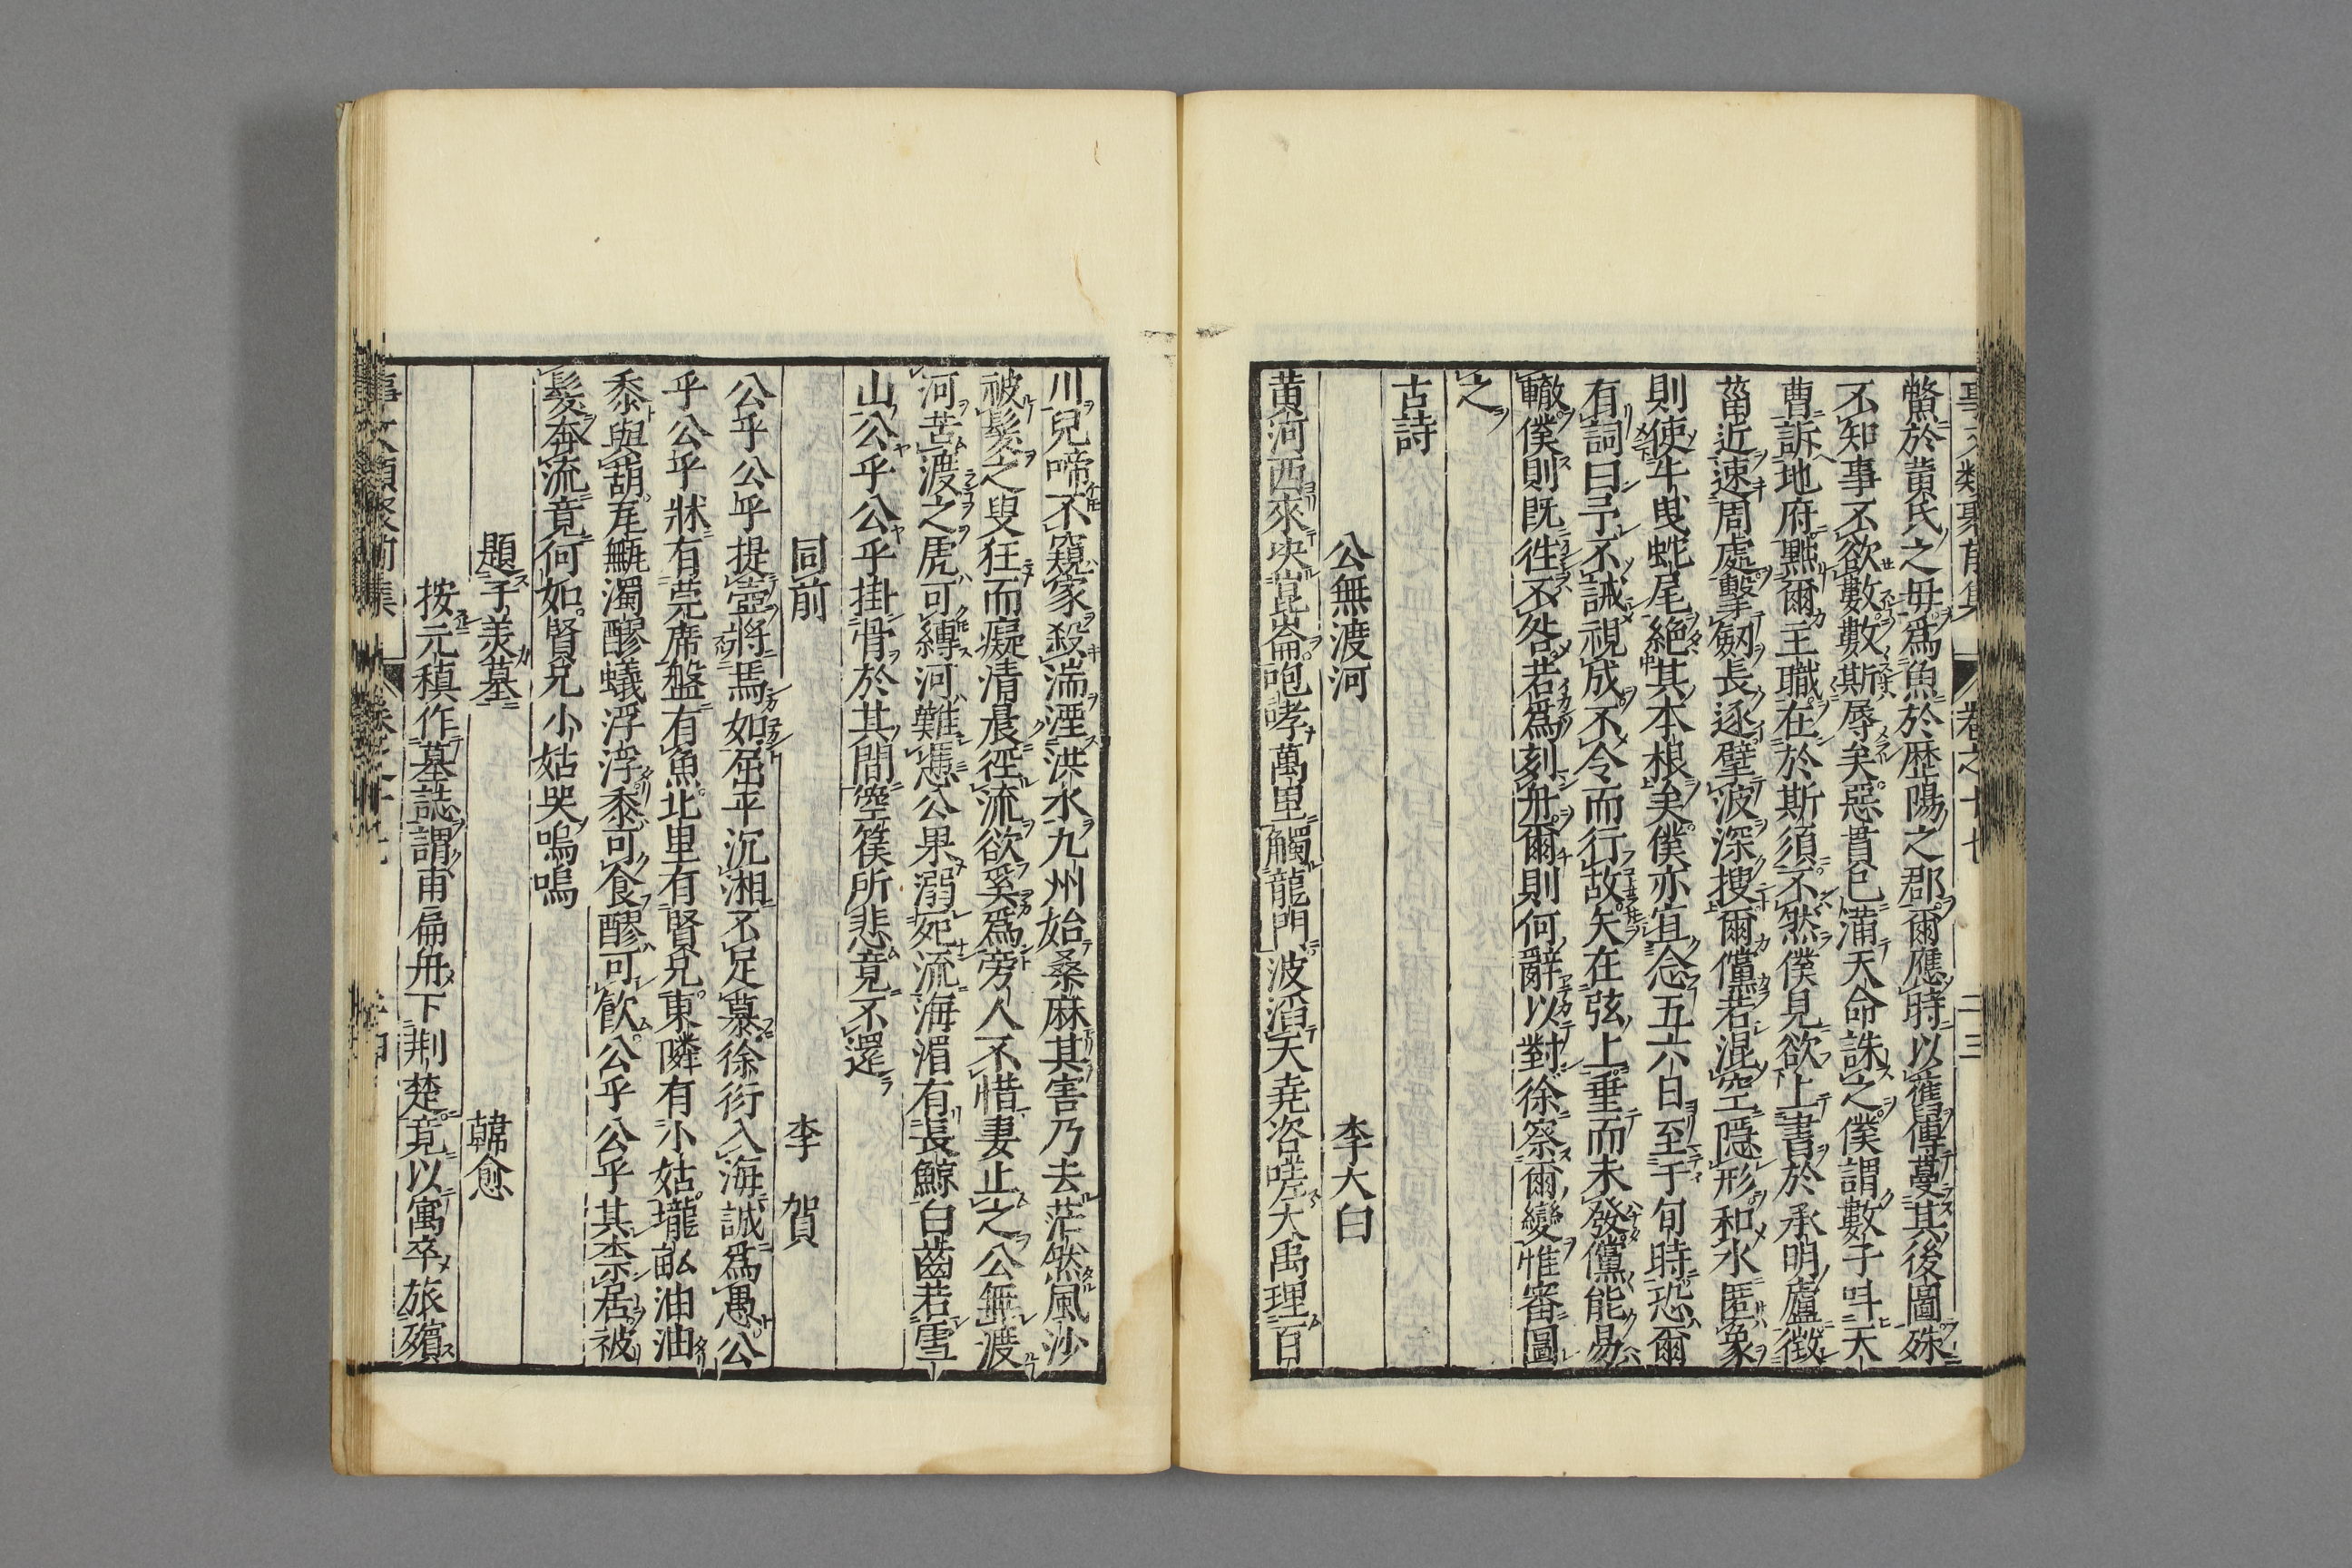 事文類聚前集 卷之十七 二三
鱉於黄氏之毋爲魚於歴陽之郡爾應時以舊傳蔓其後圖殊
不知事不欲數數斯辱矣惡貫已滿天命誅之僕謂數子叫天
曹訴地府黜爾主職在於斯須不然僕見欲上書於承明廬徴
菑近速周處擊劒長逐壁波深搜爾儻若混空隱形和水匿象
則使牛曳蛇尾絶其本根矣僕亦宜念五六日至于旬時恐爾
有詞曰予不誡視成不令而行故矢在弦上垂而未發儻能易
轍僕則既徃不咎若爲刻舟爾則何辭以對徐察爾變惟審圖
之
古詩
公無渡河 李太白
黄河西來决崑崙咆哮萬里觸龍門波滔天堯咨嗟大禹理百
川兒啼不窺家殺湍湮洪水九州始桑麻其害乃去茫然風沙
被髮之叟狂而癡清晨徑流欲奚爲旁人不惜妻止之公無渡
河苦渡之虎可縛河難憑公果溺死流海湄有長鯨白齒若雪
山公乎公乎掛骨於其間箜篌所悲竟不還
同前 李賀
公乎公乎提壺將焉如屈平沉湘不足慕徐衍入海誠爲愚公
乎公乎牀有莞席盤有魚北里有賢兄東隣有小姑瓏畝油油
黍與葫瓦甒濁醪蟻浮浮黍可食醪可飮公乎公乎其柰居被
髮奔流竟何如賢兄小姑哭嗚嗚
題子美墓 韓愈
按元稹作墓誌謂甫扁舟下荆楚竟以寓卒旅殯
事文類聚前集